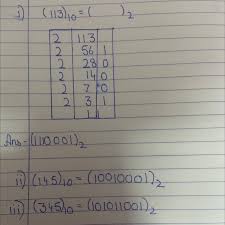 i) (113)10 = ( )2
2 113
2 56 1
2 28 0
2 14 0
2 7 0
2 3 1
1 1
Ans - (1110001)2
ii) (145)10 = (10010001)2
iii) (345)10 = (101011001)2